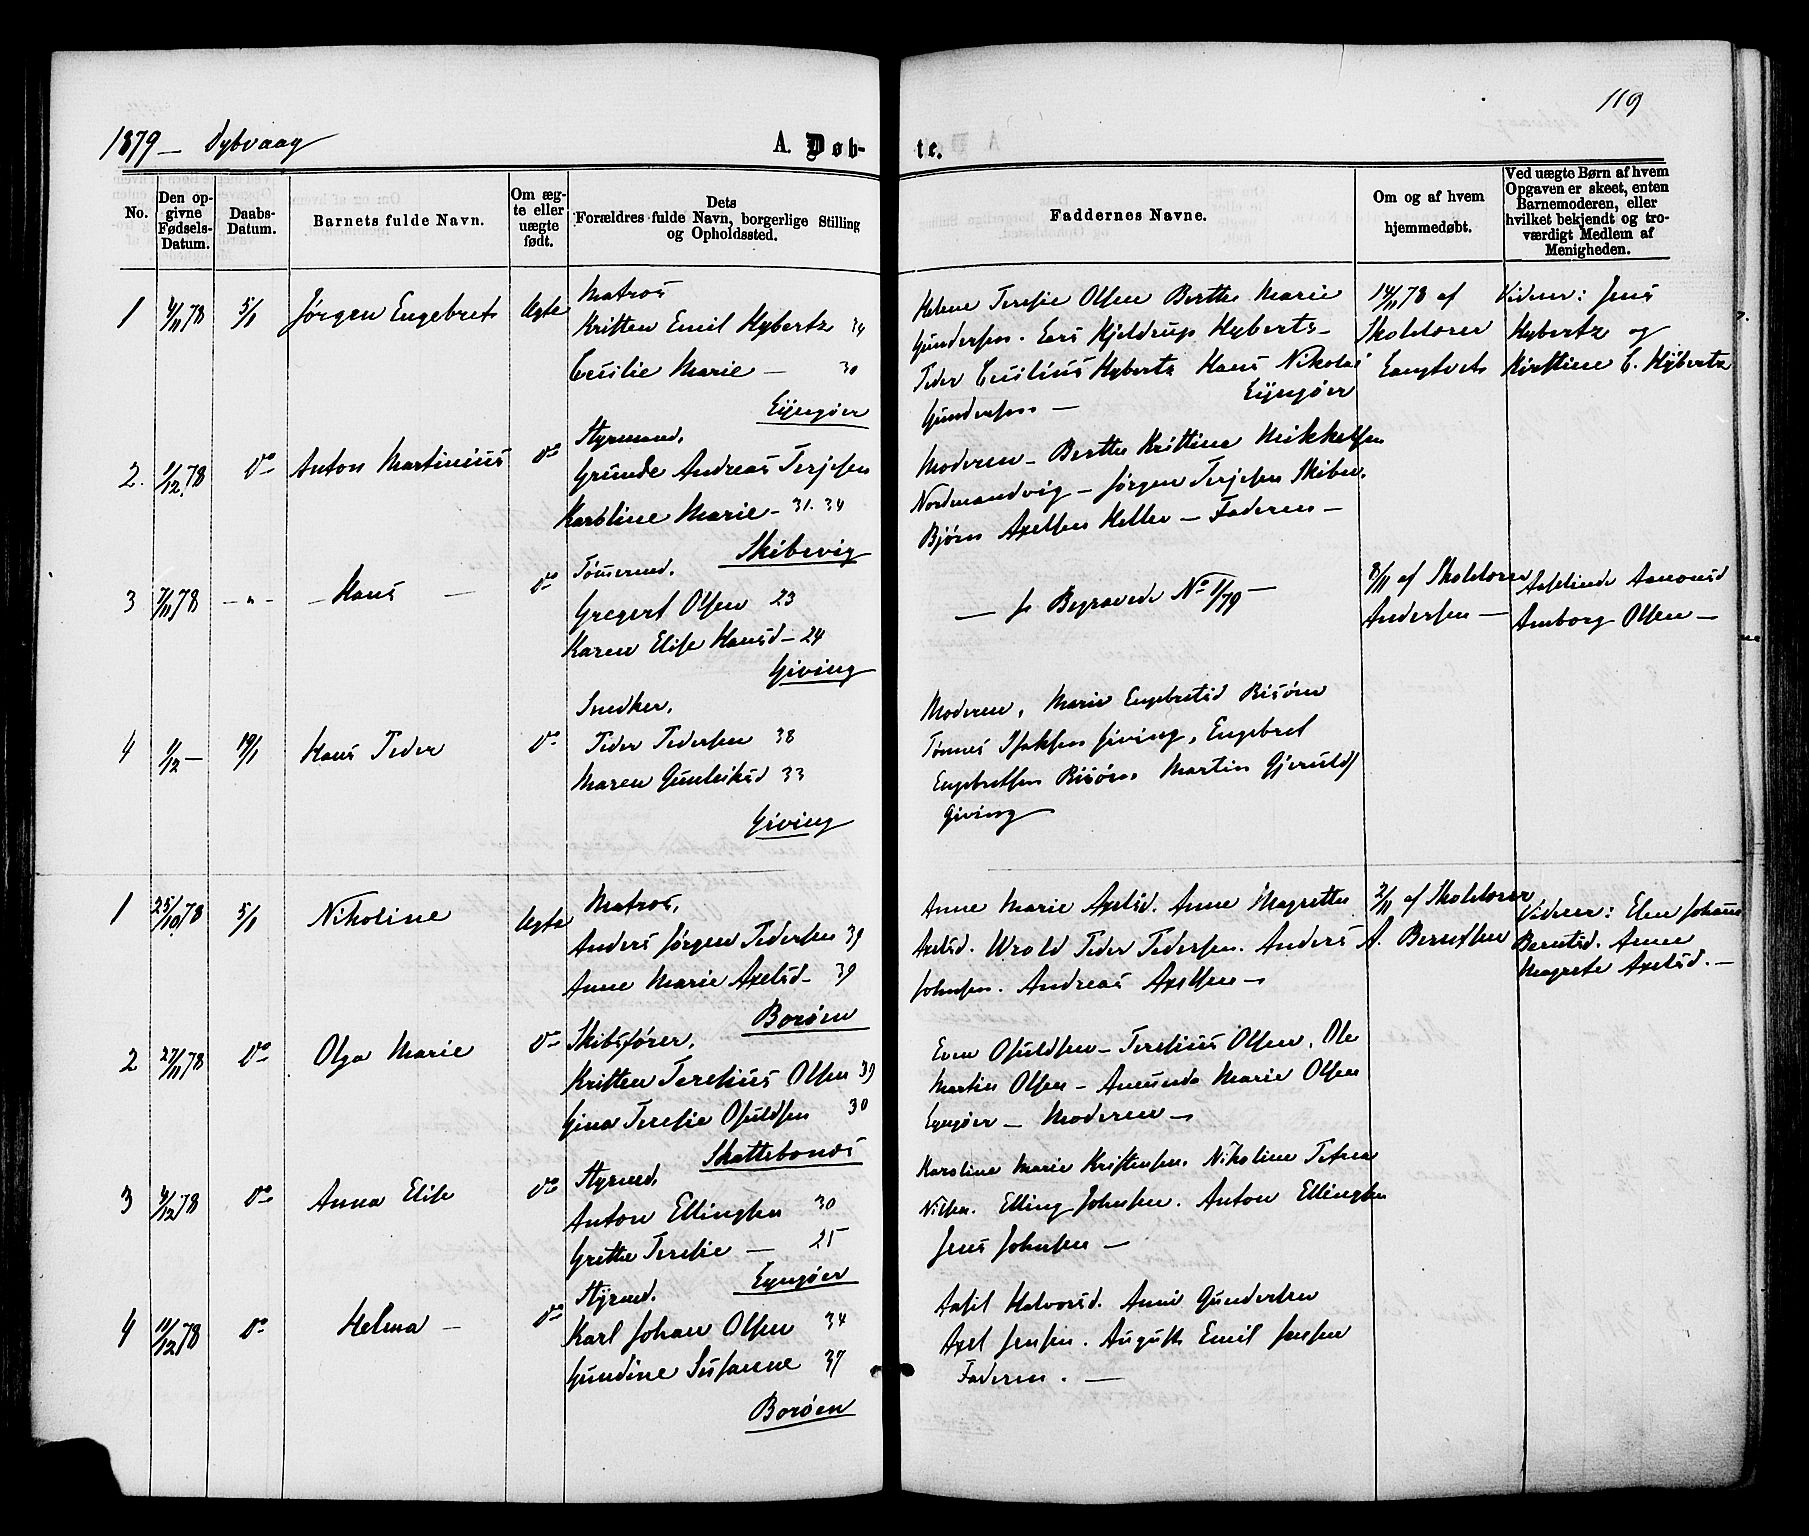 119
1879 — Dybvaag
A. Døb-
te.
No.
Den op-
givne
Fødsels-
Datum.
Daabs-
Datum.
Barnets fulde Navn.
Om æg-
te eller
uægte
født.
Dets
Forældres fulde Navn, borgerlige Stilling
og Opholdssted.
Faddernes Navne.
Om og af hvem
hjemmedøbt.
Ved uægte Børn af hvem
Opgaven er skeet, enten
Barnemoderen, eller
hvilket bekjendt og tro-
værdigt Medlem af
Menigheden.
1 4/11 78 5/1 Jørgen Engebret Ægte
Matros
Kristen Emil Hybertz 34
Cecilie Marie — 30
Eijngøer
Helene Teresie Olsen Berthe Marie
Gundersen. Lars Kjeldrup Hyberts —
Peder Cecilius Hyberts Hans Nikolai
Gundersen — Eijngøer
14/11 78 af
Skolelærer
Langtvet
Vidner: Jens
Hybertz og
Kirstine C. Hybertz
2. 1/12 78 Do Anton Martinius Do
Styrmand.
Grunde Andreas Terjesen
Karoline Marie — 31. 34
Skibevig
Moderen — Berthe Kristine Mikkelsen
Nordmandvig — Jørgen Terjesen Skibev.
Bjørn Axelsen Helle — Faderen —
3 7/11 78 — " — — Hans — Do
Tømmermd.
Gregert Olsen 23
Karen Elise Hansd — 24
Giving
— fr Begravede No 1/79 —
8/11 af Skolelærer
Andersen —
Aaselinde Aanonsd
Amborg Olsen —
4 1/12 — 19/1 Hans Peder Do
Snedker,
Peder Pedersen 38
Maren Gunleiksd 33
Giving
Moderen, Marie Engebretsd Risøen
Tønnes Isaksen Giving, Engebret
Engebretsen Risøen, Martin Gjeruldsf
Giving
1 25/10 78 5/1 Nikoline Ægte
Matros,
Anders Jørgen Pedersen 39
Anne Marie Axelsd — 39
Borøen
Anne Marie Axelsd. Anne Magrethe
Axelsd. Wrold Peder Pedersen. Anders
Johnsen. Andreas Axelsen —
2/11 af Skolelærer
A. Berntsen
Vidner: Elen Johanne
Berntsd. Anne
Magrete Axelsd. —
2 27/11 78 Do Olga Marie Do
Skibsfører,
Kristen Teresius Olsen 39
Gina Teresie Osuldsen 30
Skottebonæs
Even Osuldsen — Teresius Olsen, Ole
Martin Olsen — Amunda Marie Olsen
Eijngøer — Moderen —
3 4/12 78 Do Anna Elise Do
Styrmd,
Anton Ellingsen 30
Grethe Teresie — 25
Eijngøer
Karoline Marie Kristensen. Nikoline Petrea
Nilsen. Elling Johnsen. Anton Ellingsen
Jens Johnsen —
4 11/12 78 Do Helma — Do
Styrmd.
Karl Johan Olsen 34
Gundine Susanne 37
Borøen
Aasil Halvorsd. Anne Gundersen
Axel Jensen. August Emil Jensen
Faderen. —